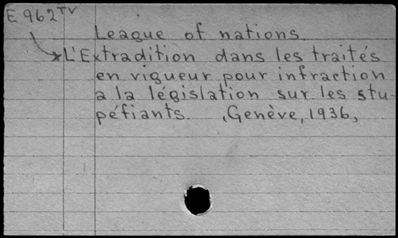 E 962 TV
League of nations.
L'Extradition dans les traités
en vigueur pour infraction
a la législation sur les stu-
péfiants. Genève, 1936,